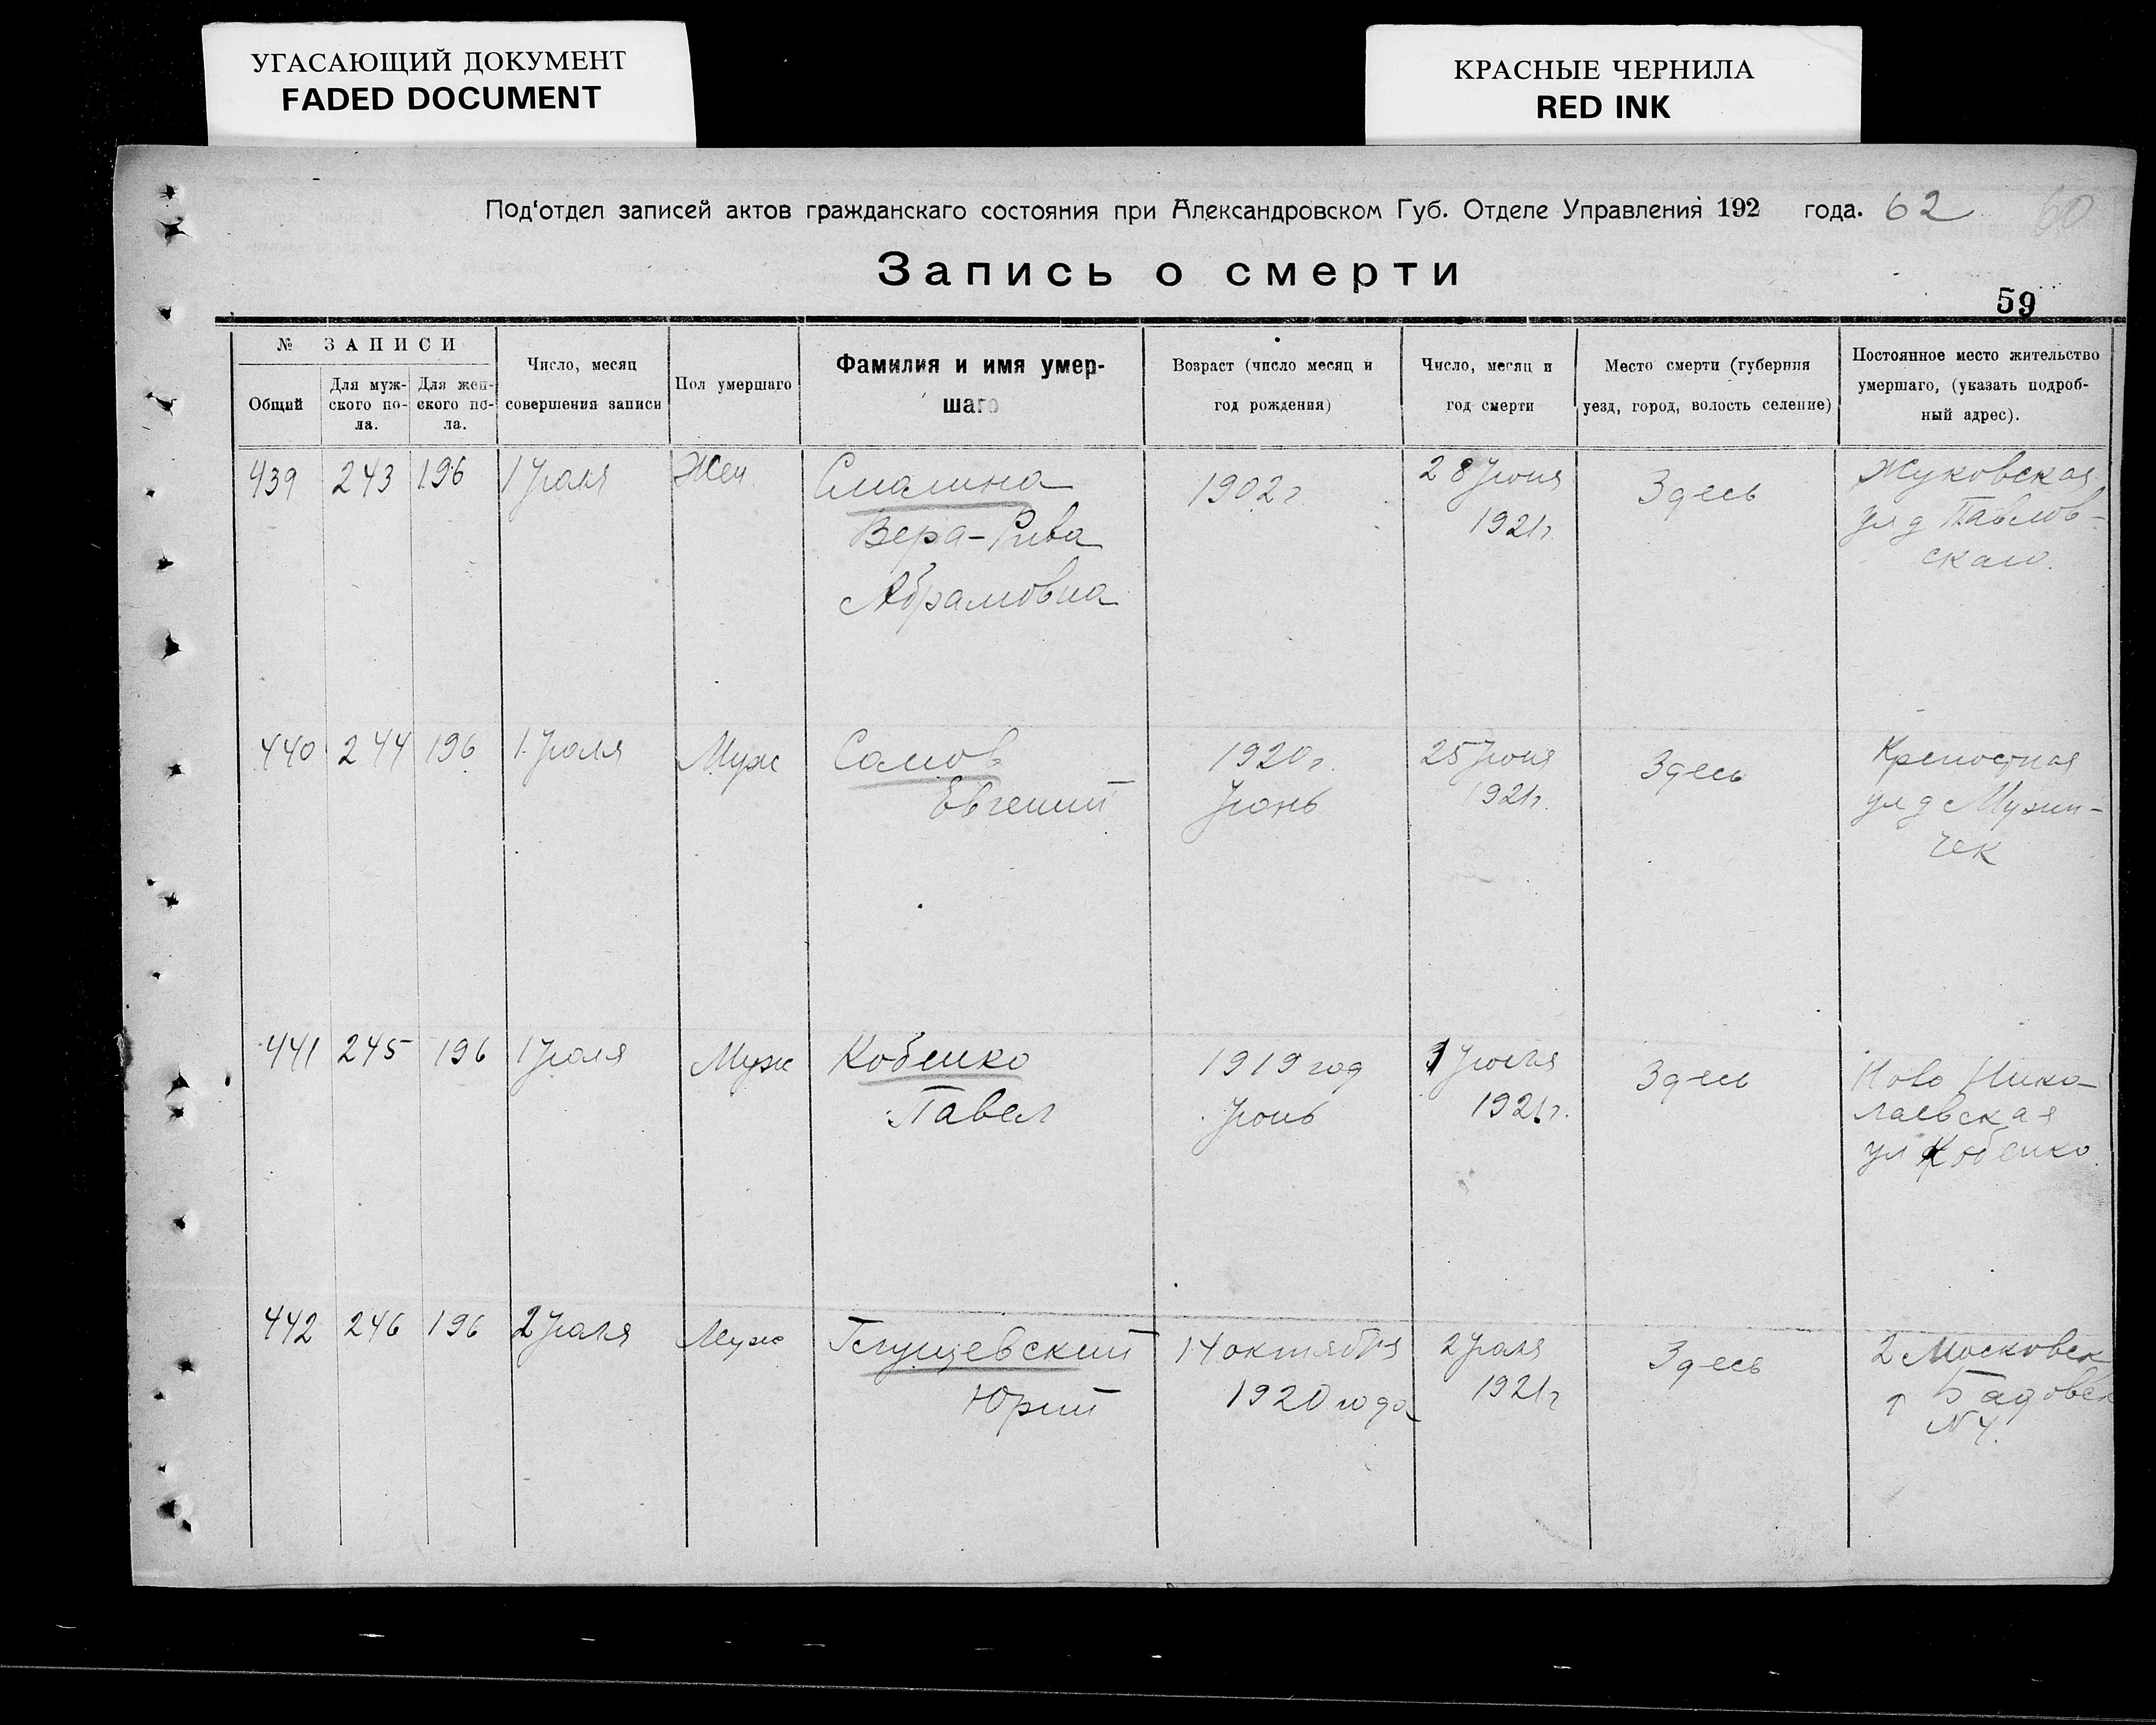 УГАСАЮЩИЙ ДОКУМЕНТ
FADED DOCUMENT
КРАСНЫЕ ЧЕРНИЛА
RED INK
Под'отдел записей актов гражданскаго состояния при Александровском Губ. Отделе Управления 192 года. 62 60
Запись о смерти
59
№ ЗАПИСИ
Общий
Для муж-
ского по-
ла.
Для жен-
ского по-
ла.
Число, месяц
совершения записи
Пол умершаго
Фамилия и имя умер-
шаго
Возраст (число месяц и
год рождения)
Число, месяц и
год смерти
Место смерти (губерния
уезд, город, волость селение)
Постоянное место жительство
умершаго, (указать подроб-
ный адрес).
439 243 196 1 Июля Жен. Смалина 1902 г 28 Июня Здесь Жуковская
Вера-Рива 1921 г. ул д Павлов-
Абрамовна ского.
440 244 196 1 Июля Муж Самов 1920 г. 25 Июня Здесь Крепостная
Евгений Июнь 1921 г. ул д
чек
441 245 196 1 Июля Муж Кобенко 1919 год 1 Июля Здесь Ново Нико-
Павел Июнь 1921 г. лаевская
ул д Кобенко
442 246 196 2 Июля Муж Глущевский 14 октября 2 Июля Здесь 2 Московск
Юрий 1920 года 1921 г
N 4.